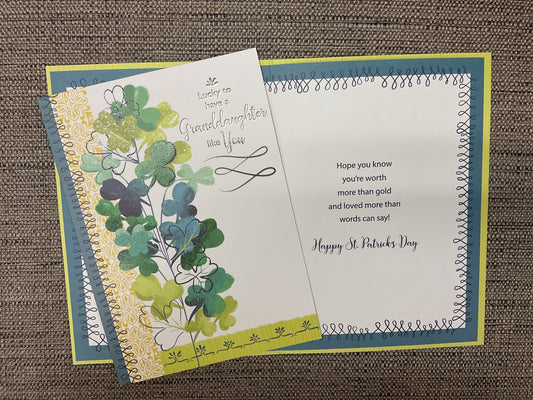 Lucky to
have a
Granddaughter
like You
Hope you know
you're worth
more than gold
and loved more than
words can say!
Happy St. Patrick's Day